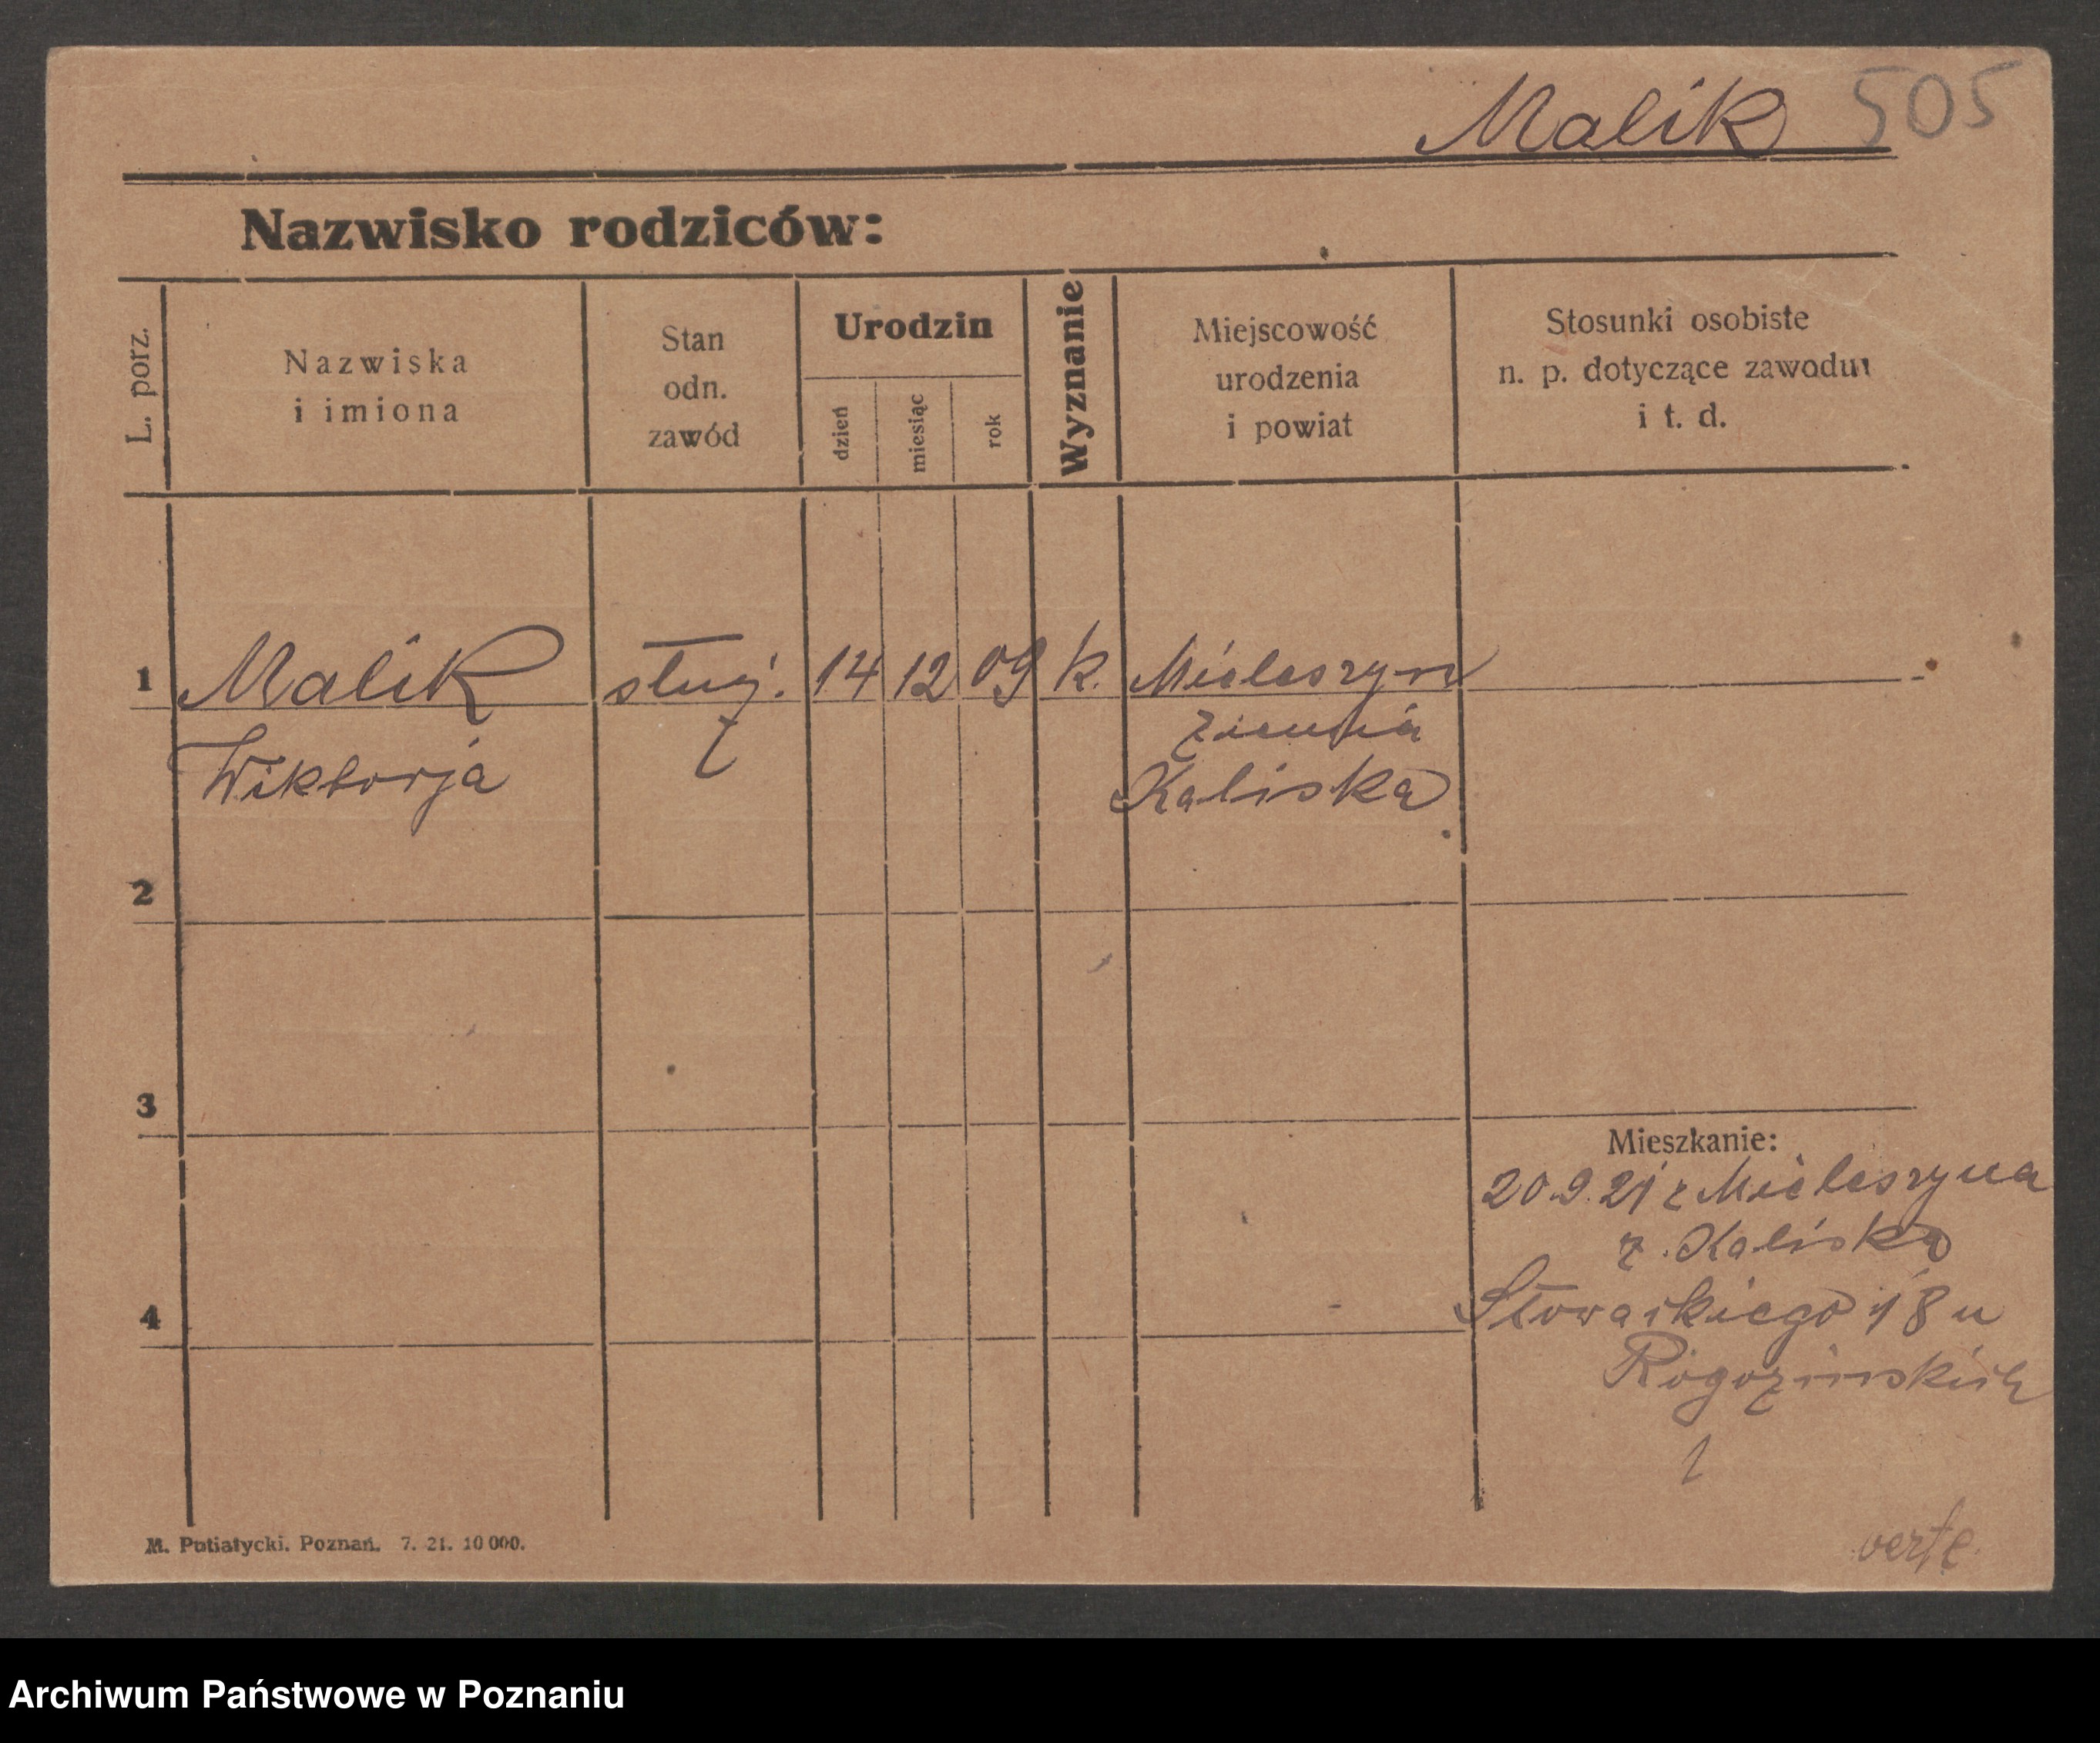 Malik 505
Nazwisko rodziców:
L. porz.
Nazwiska
i imiona
Stan
odn.
zawód
Urodzin
dzień
miesiąc
rok
Wyznanie
Miejscowość
urodzenia
i powiat
Stosunki osobiste
n. p. dotyczące zawodu
i t. d.
1 Malik służ. 14 12 09 k. Mieleszyn
Wiktorja
ziemia
Kaliska
2
3
4
Mieszkanie:
20.9.21 z Mieleszyna
z. Kaliska
Słowackiego 18 u
Rogozinskich
verte
M. Putiatycki. Poznań. 7. 21. 10 000.
Archiwum Państwowe w Poznaniu